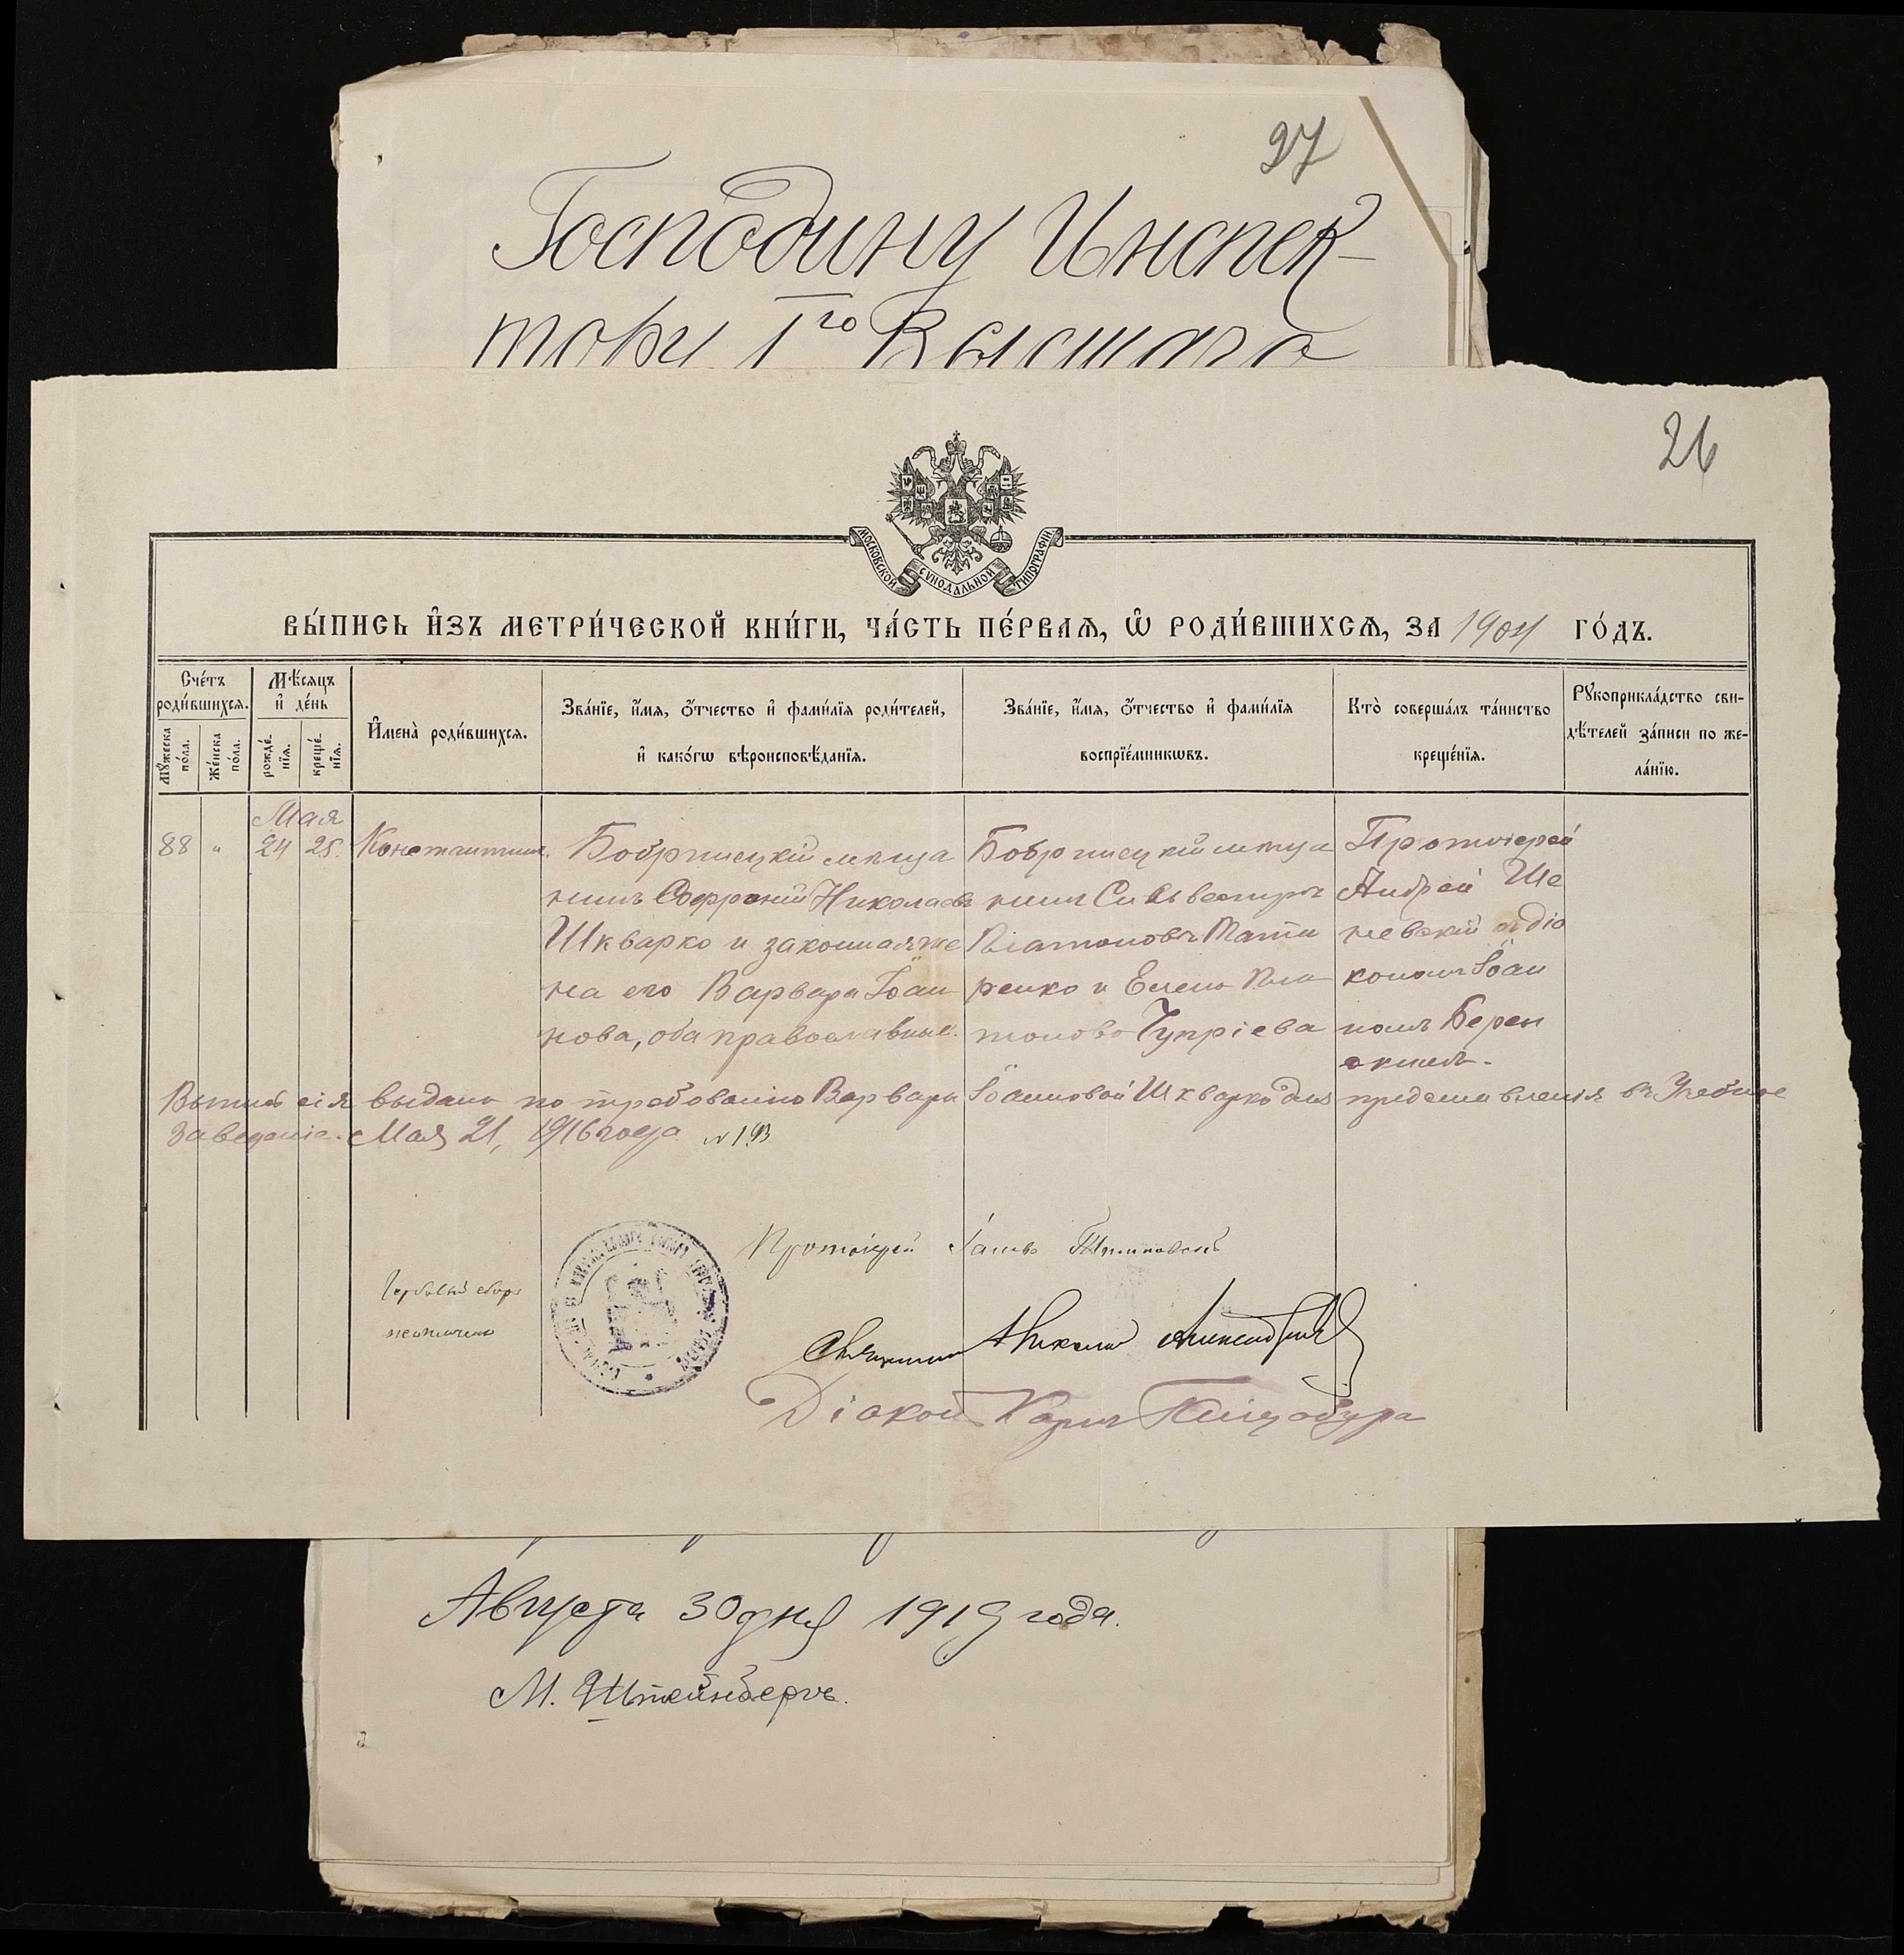 27
Господину Инспек-
тору 1го Высшаго
26
МОСКОВСКОЙ СУНОДАЛЬНОЙ ТИПОГРАФІИ.
ВЫ́ПИСЬ И҆ЗЪ МЕТРИ́ЧЕСКОЙ КНИ́ГИ, ЧА́СТЬ ПЕ́РВАѦ, Ѡ҆ РОДИ́ВШИХСѦ, ЗА 1904 ГО́ДЪ.
Сче́тъ роди́вшихсѧ.
Мꙋ́жеска по́ла.
Же́нска по́ла.
Мѣ́сѧцъ и҆ де́нь
рожде́нїѧ.
креще́нїѧ.
И҆мена̀ роди́вшихсѧ.
Зва́нїе, и҆́мѧ, ѻ҆́тчество и҆ фами́лїѧ роди́телей,
и҆ како́гѡ вѣроисповѣ́данїѧ.
Зва́нїе, и҆́мѧ, ѻ҆́тчество и҆ фами́лїѧ
воспрїе́мникѡвъ.
Кто̀ соверша́лъ та́инство
креще́нїѧ.
Рꙋкоприкла́дство сви-
дѣ́телей за́писи по же-
ла́нїю.
Мая
88 " 24 25. Константинъ.
Бобринецкій мѣща
нинъ Софроній Николаевъ
Шкварко и законная же
на его Варвара Іоан
нова, оба православные.
Бобринецкій мѣща
нинъ Сильвестръ
Платоновъ Тати
ренко и Елена Пла
тонова Чупріева
Протоіерей
Андрей Ше
невскій съ діа
кономъ Іоан
номъ Берен
Выпись сія выдана по требованію Варвары Іоанновой Шкварко для представленія въ Учебное
Заведеніе. Мая 21, 1916 года № 193
Протоіерей
Гербовый сборъ
неоплаченъ
Священникъ Николай
Діаконъ
Августа 30 дня 1919 года.
М. Штейнбергъ.